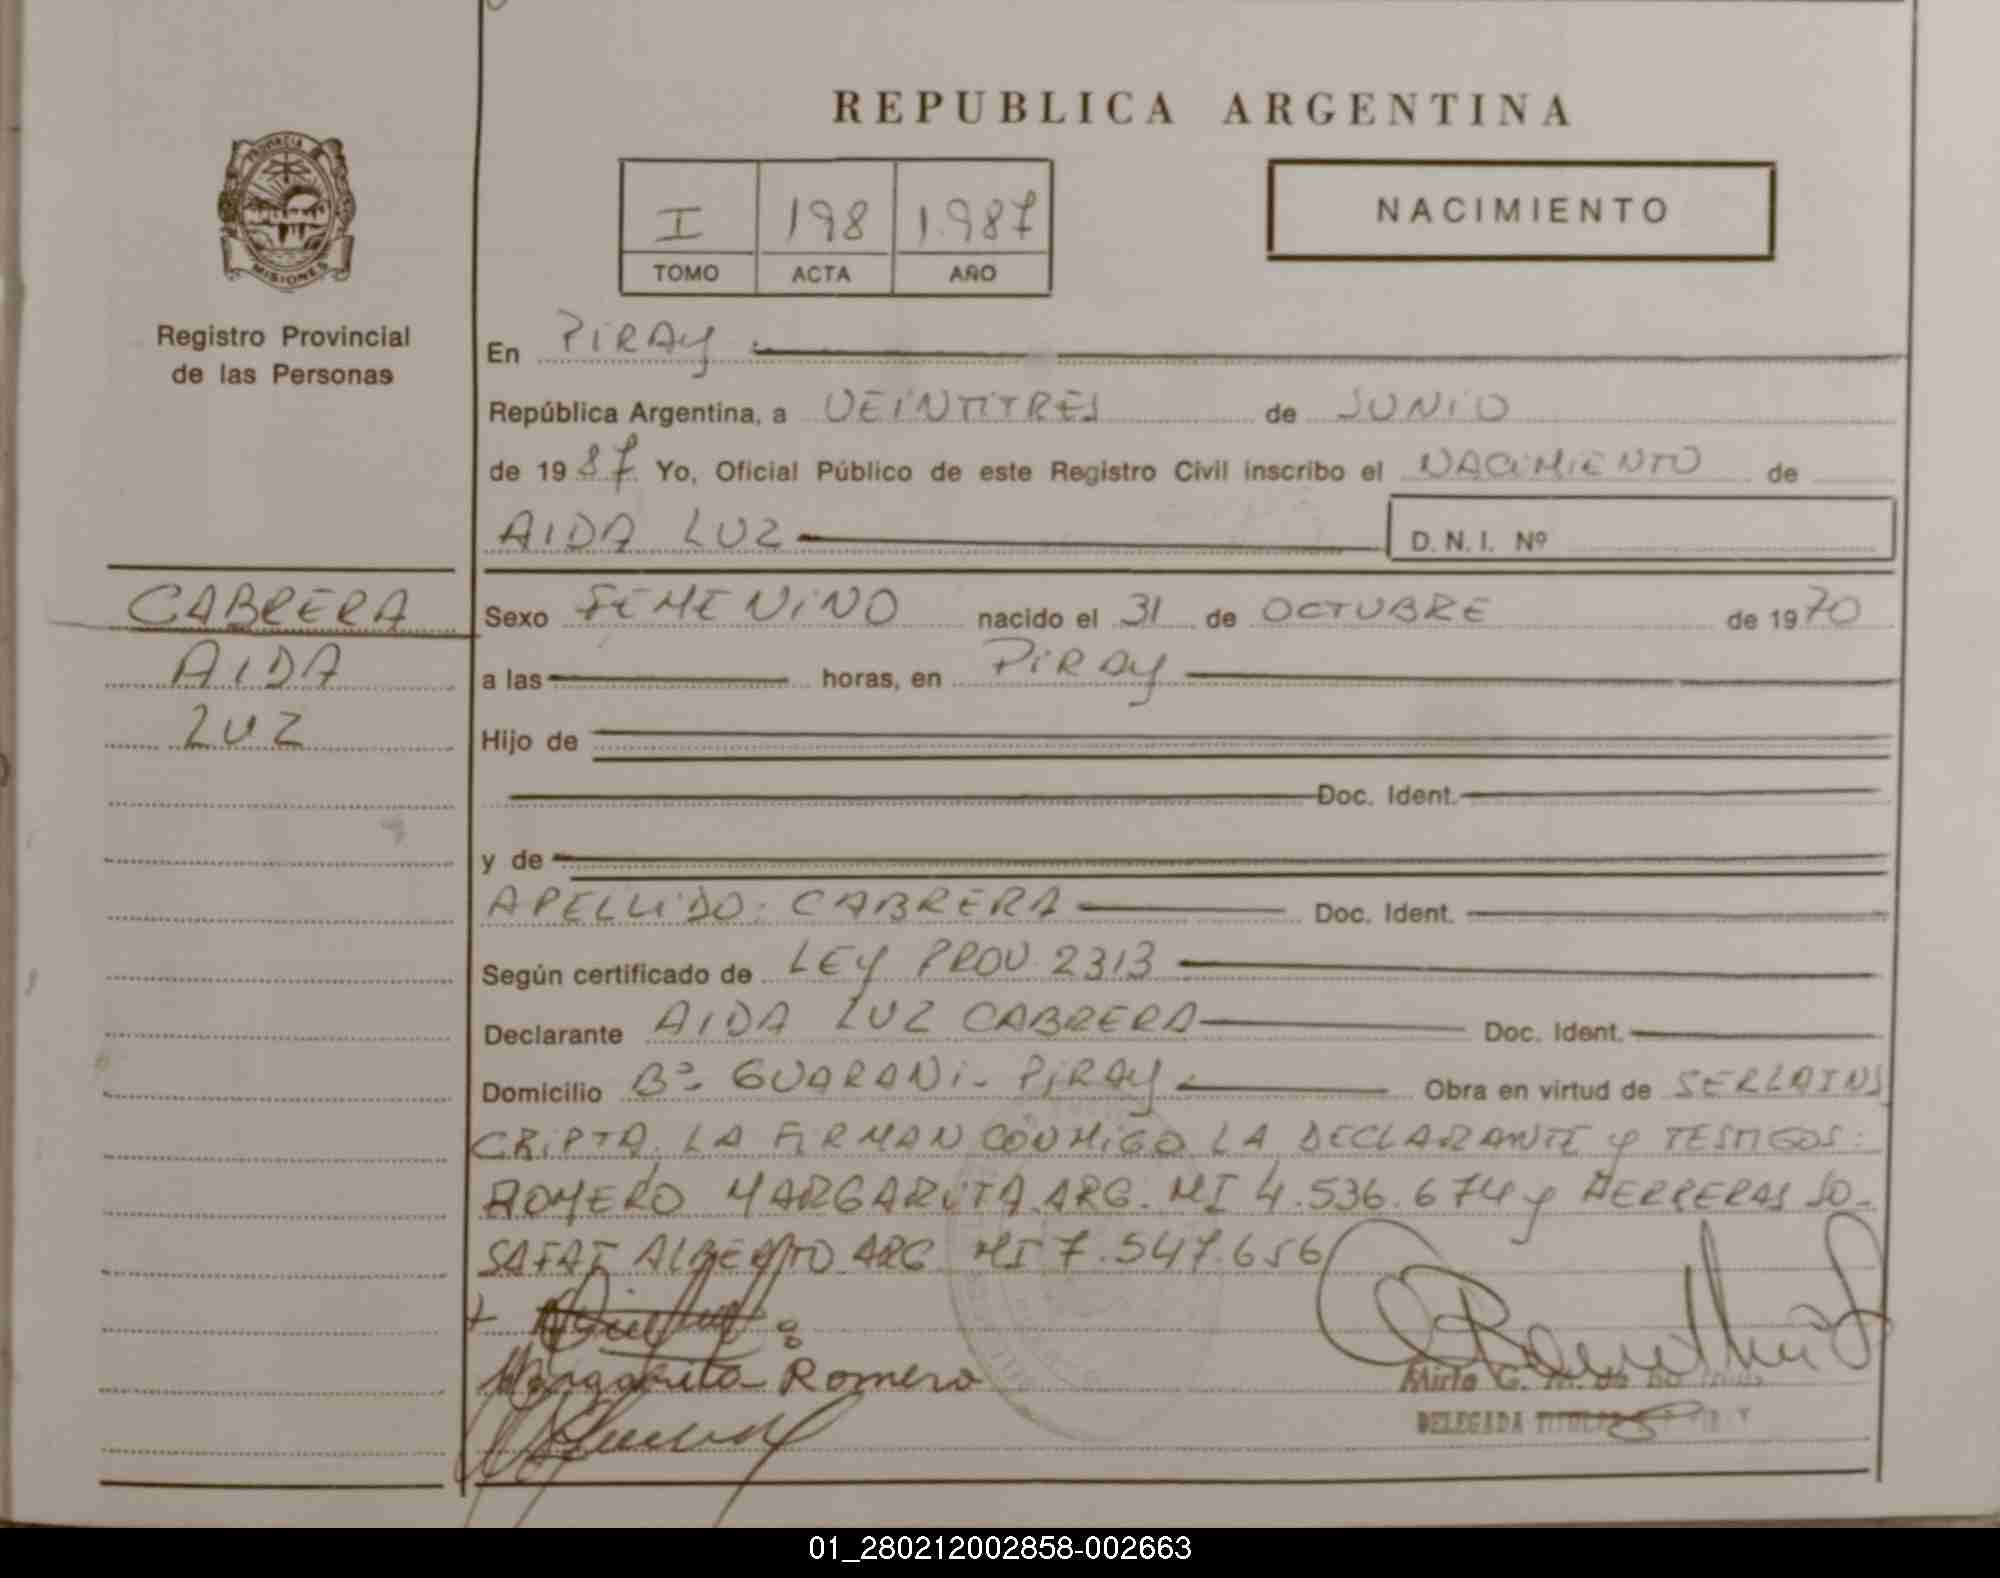 REPUBLICA ARGENTINA
PROVINCIA DE MISIONES
I 198 1.987
TOMO ACTA AÑO
NACIMIENTO
Registro Provincial
de las Personas
CABRERA
AIDA
LUZ
En PIRAY
República Argentina, a VEINTITRES de JUNIO
de 1987 Yo, Oficial Público de este Registro Civil inscribo el NACIMIENTO de
AIDA LUZ D. N. I. Nº
Sexo FEMENINO nacido el 31 de OCTUBRE de 1970
a las horas, en PIRAY
Hijo de
Doc. Ident.
y de
APELLIDO: CABRERA Doc. Ident.
Según certificado de LEY PROV 2313
Declarante AIDA LUZ CABRERA Doc. Ident.
Domicilio Bº- GUARANI- PIRAY Obra en virtud de SER LA INS
CRIPTA. LA FIRMAN CONMIGO LA DECLARANTE y TESTIGOS:
ROMERO MARGARITA ARG. MI 4.536.674 y HERRERAS JO-
SAFAT ALBERTO ARG MI 7.547.656
Margarita Romero
Mirta G. M. de
DELEGADA
01_280212002858-002663